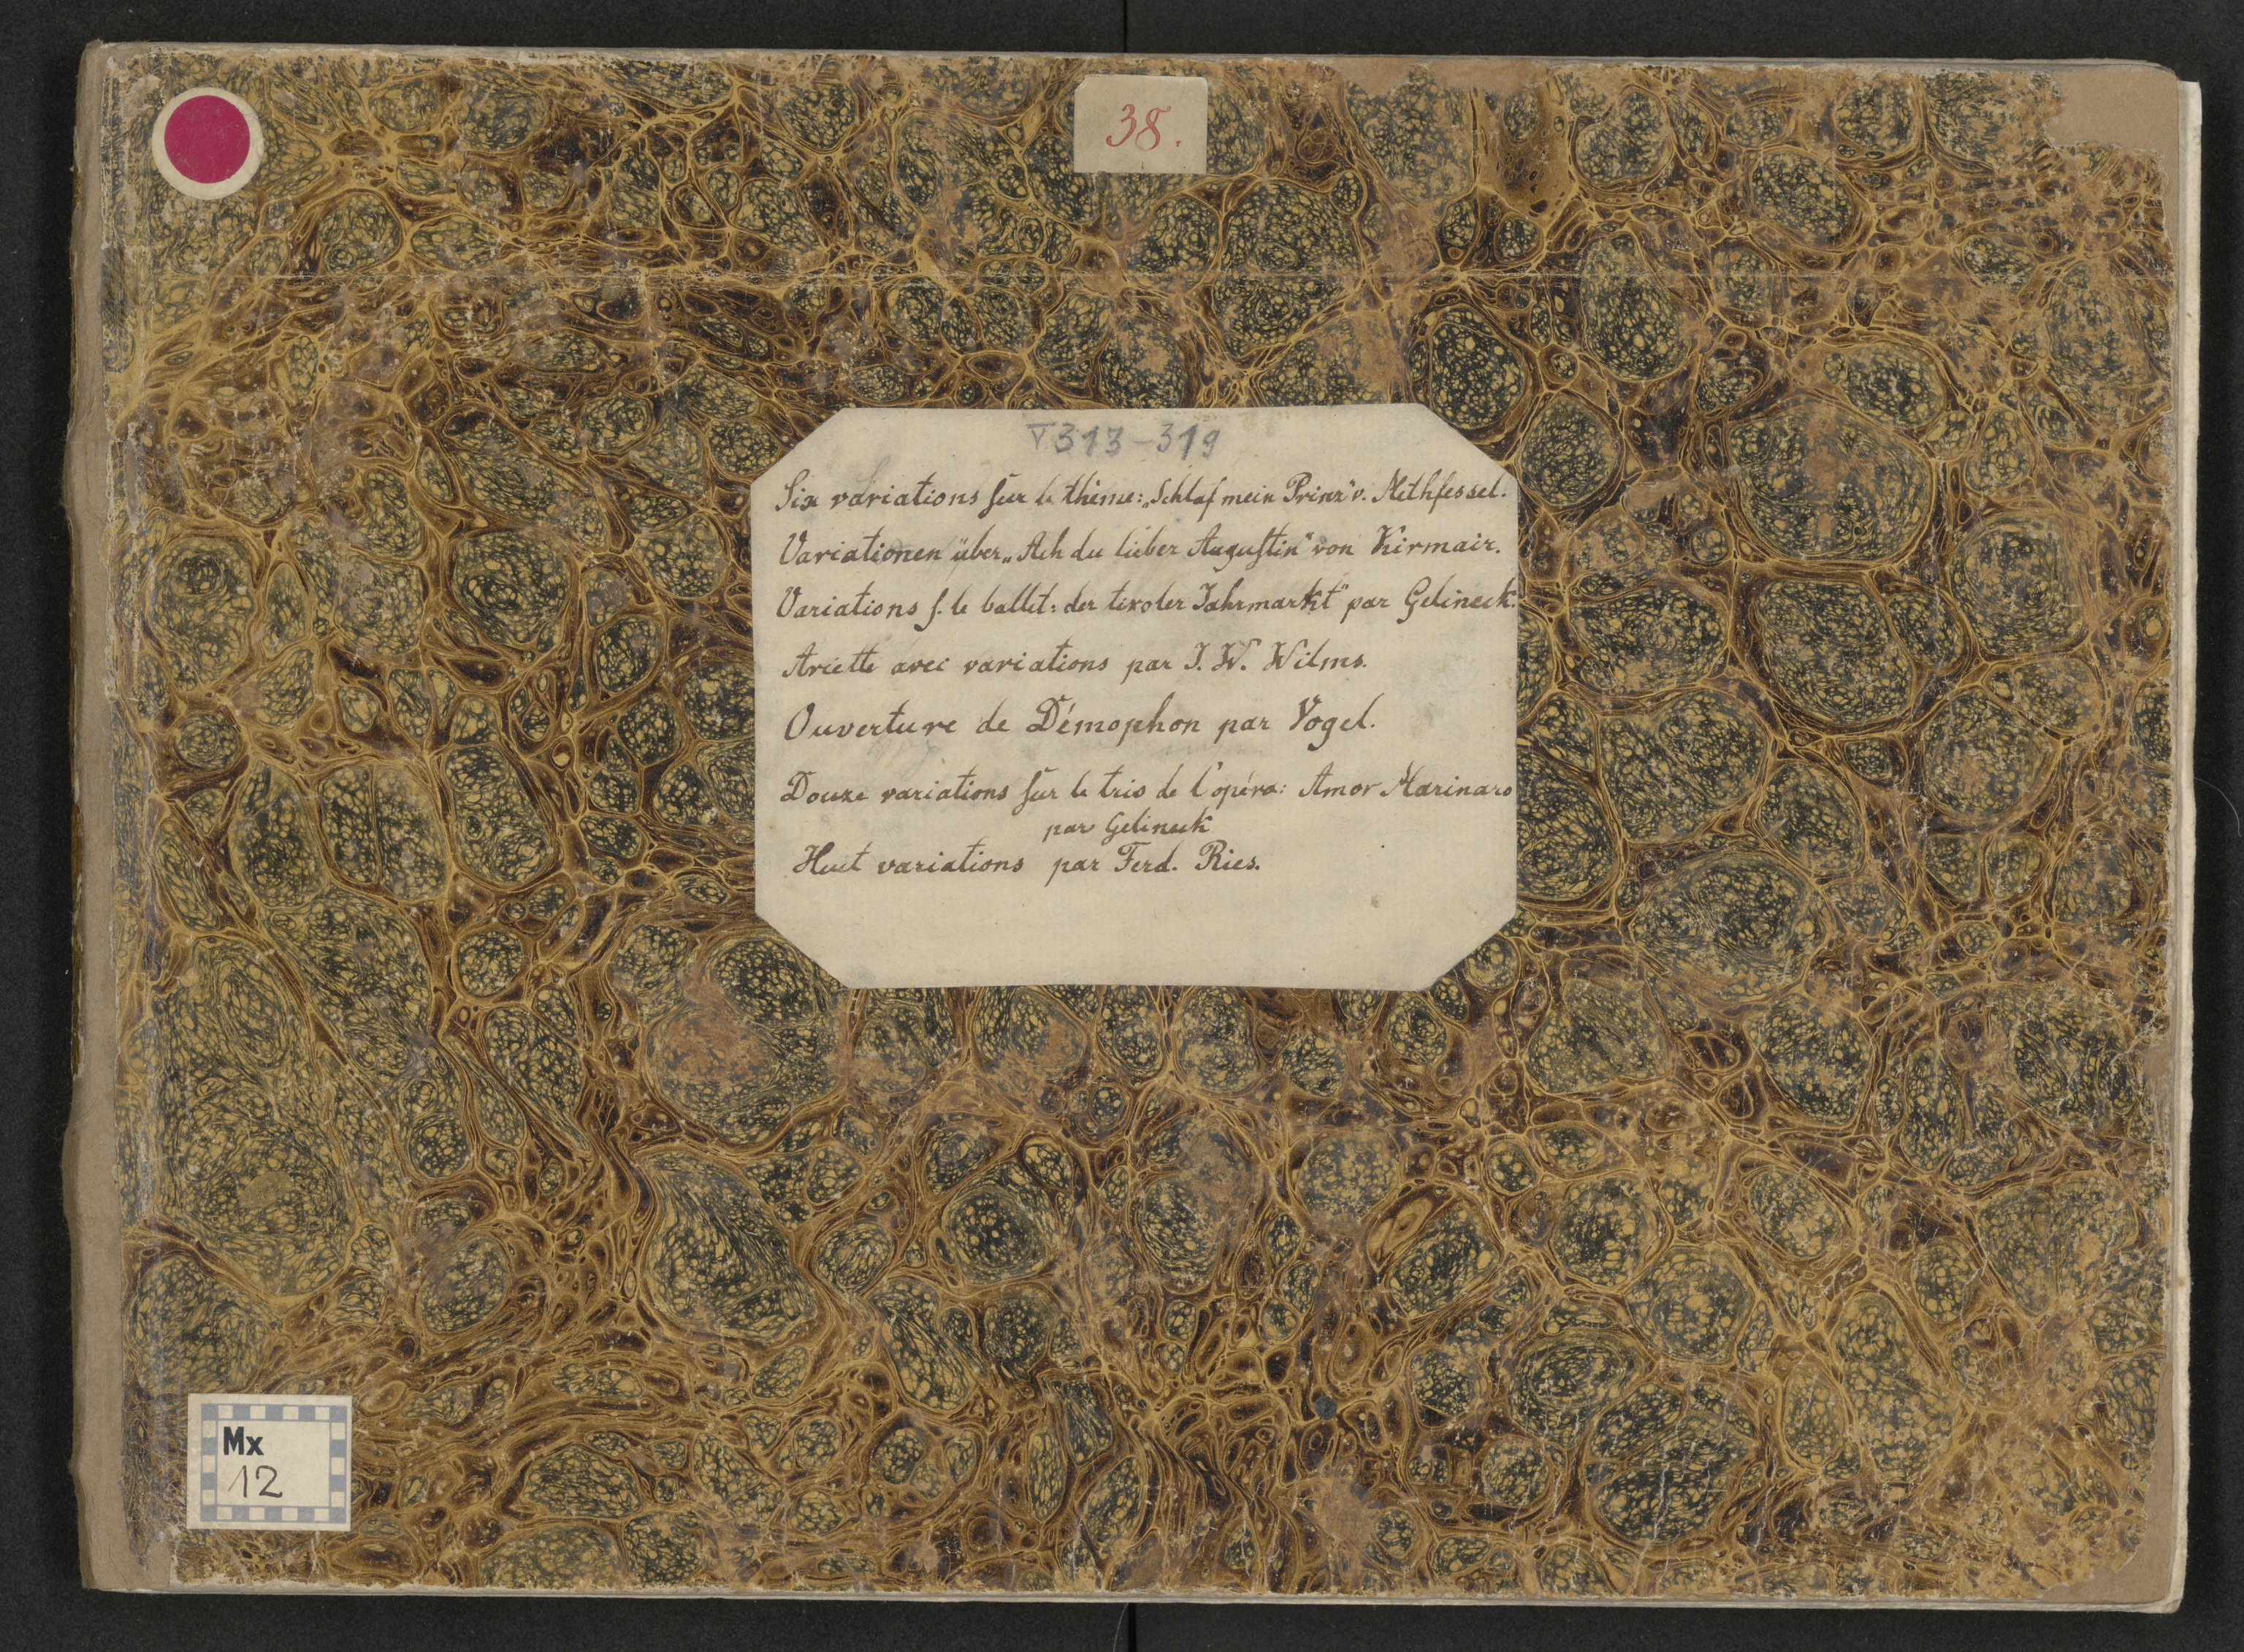 38.
V 313-319
Six variations sur le thème: „Schlaf mein Prinz" v. Methfessel.
Variationen über „Ach du lieber Augustin" von Kirmair.
Variations s. le ballet: der tiroler Jahrmarkt" par Gelineck.
Ariette avec variations par J. W. Wilms.
Ouverture de Démophon par Vogel.
Douze variations sur le trio de l'opéra: Amor Marinaro
par Gelineck
Huit variations par Ferd. Ries.
Mx
12